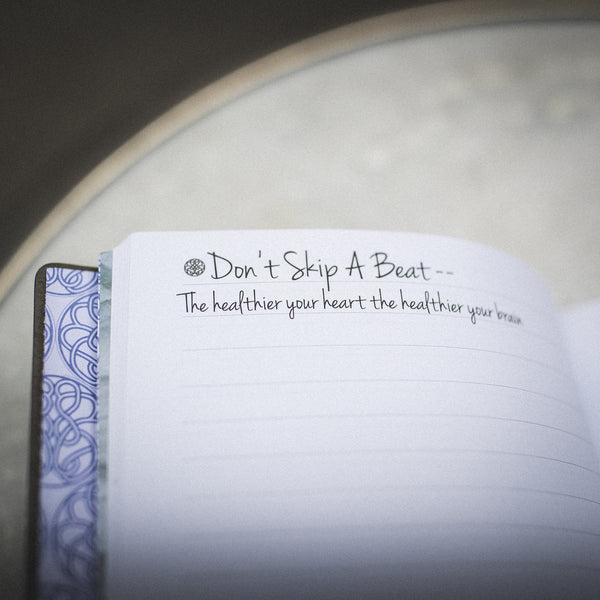 Don't Skip A Beat --
The healthier your heart the healthier your brain